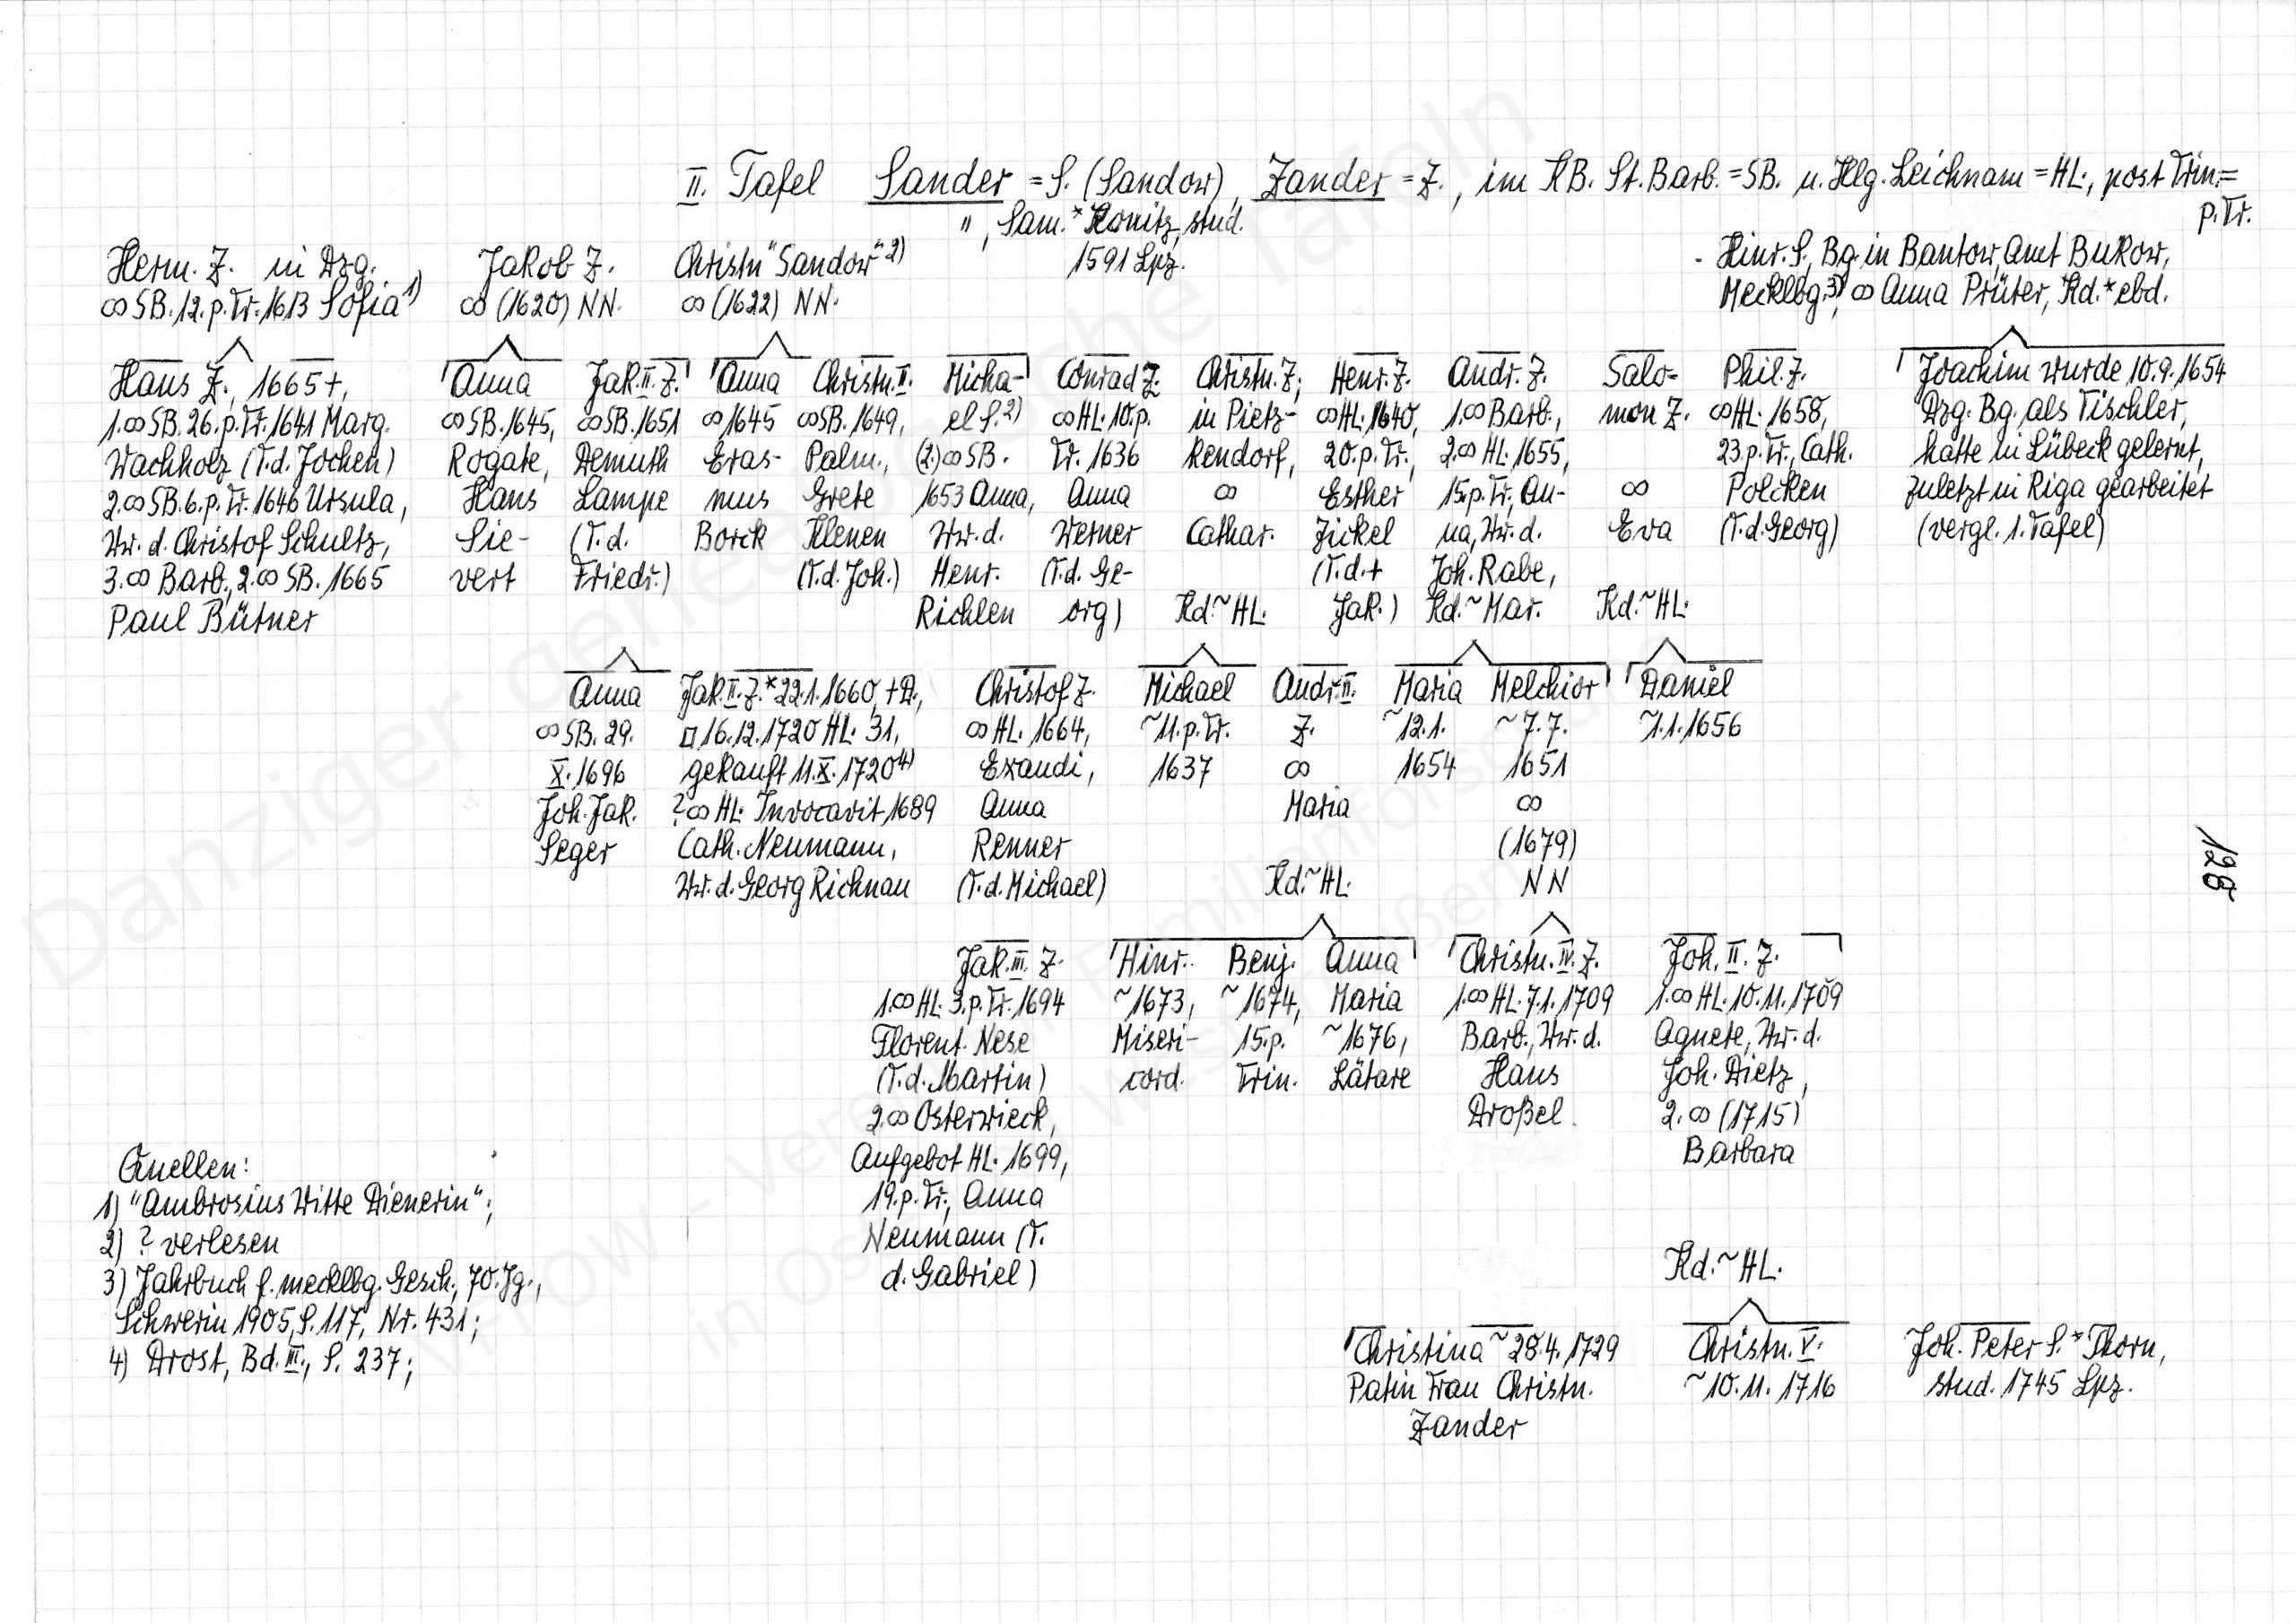 II. Tafel Sander = S. (Sandow), Zander = Z., im KB. St. Barb. = SB. u. Hlg. Leichnam = HL., post Trin. =
p. Tr.
", Sam. * Konitz, stud.
1591 Lpz.
Herm. Z. in Dzg.
∞ SB. 12. p. Tr. 1613 Sofia 1)
Jakob Z.
∞ (1620) NN.
Christn "Sandow" 2)
∞ (1622) NN.
Hinr. S., Bg. in Bantow, Amt Bukow,
Mecklbg. 3) ∞ Anna Prüter, Kd. * ebd.
Hans Z., 1665 +,
1. ∞ SB. 26. p. Tr. 1641 Marg.
Wachholz (T. d. Jochen)
2. ∞ SB. 6. p. Tr. 1646 Ursula,
Ww. d. Christof Schultz,
3. ∞ Barb., 2. ∞ SB. 1665
Paul Bütner
Anna
∞ SB. 1645,
Rogate,
Hans
Sie-
vert
Jak. II. Z.
∞ SB. 1651
Demuth
Lampe
(T. d.
Friedr.)
Anna
∞ 1645
Eras-
mus
Borck
Christn. II.
∞ SB. 1649,
Palm.,
Grete
Klenen
(T. d. Joh.)
Micha-
el S. 2)
(2.) ∞ SB.
1653 Anna,
Ww. d.
Henr.
Richlen
Conrad Z.
∞ HL. 10. p.
Tr. 1636
Anna
Werner
(T. d. Ge-
org)
Christn. Z.,
in Pietz-
kendorf,
∞
Cathar.
Kd. ~ HL.
Henr. Z.
∞ HL. 1640,
20. p. Tr.,
Esther
Zickel
(T. d. +
Jak.)
Andr. Z.
1. ∞ Barb.,
2. ∞ HL. 1655,
15. p. Tr., An-
na, Ww. d.
Joh. Rabe,
Kd. ~ Mar.
Salo-
mon Z.
∞
Eva
Kd. ~ HL.
Phil. Z.
∞ HL. 1658,
23. p. Tr., Cath.
Polcken
(T. d. Georg)
Joachim wurde 10. 9. 1654
Dzg. Bg. als Tischler,
hatte in Lübeck gelernt,
zuletzt in Riga gearbeitet
(vergl. 1. Tafel)
Anna
∞ SB. 29.
X. 1696
Joh. Jak.
Seger
Jak. II. Z. * 22. 1. 1660, + D.,
□ 16. 12. 1720 HL. 31,
gekauft 11. X. 1720 4)
? ∞ HL. Invocavit 1689
Cath. Neumann,
Ww. d. Georg Richnau
Christof Z.
∞ HL. 1664,
Exaudi,
Anna
Renner
(T. d. Michael)
Michael
~ 11. p. Tr.
1637
Andr. II.
Z.
∞
Maria
Kd. ~ HL.
Maria
~ 12. 1.
1654
Melchior
~ 7. 7.
1651
∞
(1679)
NN
Daniel
~ 1. 1. 1656
128
Jak. III. Z.
1. ∞ HL. 3. p. Tr. 1694
Florent. Nese
(T. d. Martin)
2. ∞ Osterwieck,
Aufgebot HL. 1699,
19. p. Tr., Anna
Neumann (T.
d. Gabriel)
Hinr.
~ 1673,
Miseri-
cord.
Benj.
~ 1674,
15. p.
Trin.
Anna
Maria
~ 1676,
Lätare
Christn. IV. Z.
1. ∞ HL. 7. 1. 1709
Barb., Ww. d.
Hans
Droßel
Joh. II. Z.
1. ∞ HL. 10. 11. 1709
Agnete, Ww. d.
Joh. Dietz,
2. ∞ (1715)
Barbara
Kd. ~ HL.
Christina ~ 28. 4. 1729
Patin Frau Christn.
Zander
Christn. V.
~ 10. 11. 1716
Joh. Peter S. * Thorn,
stud. 1745 Lpz.
Quellen:
1) "Ambrosius Witte Dienerin";
2) ? verlesen
3) Jahrbuch f. mecklbg. Gesch., 70. Jg.,
Schwerin 1905, S. 117, Nr. 431;
4) Drost, Bd. III., S. 237;